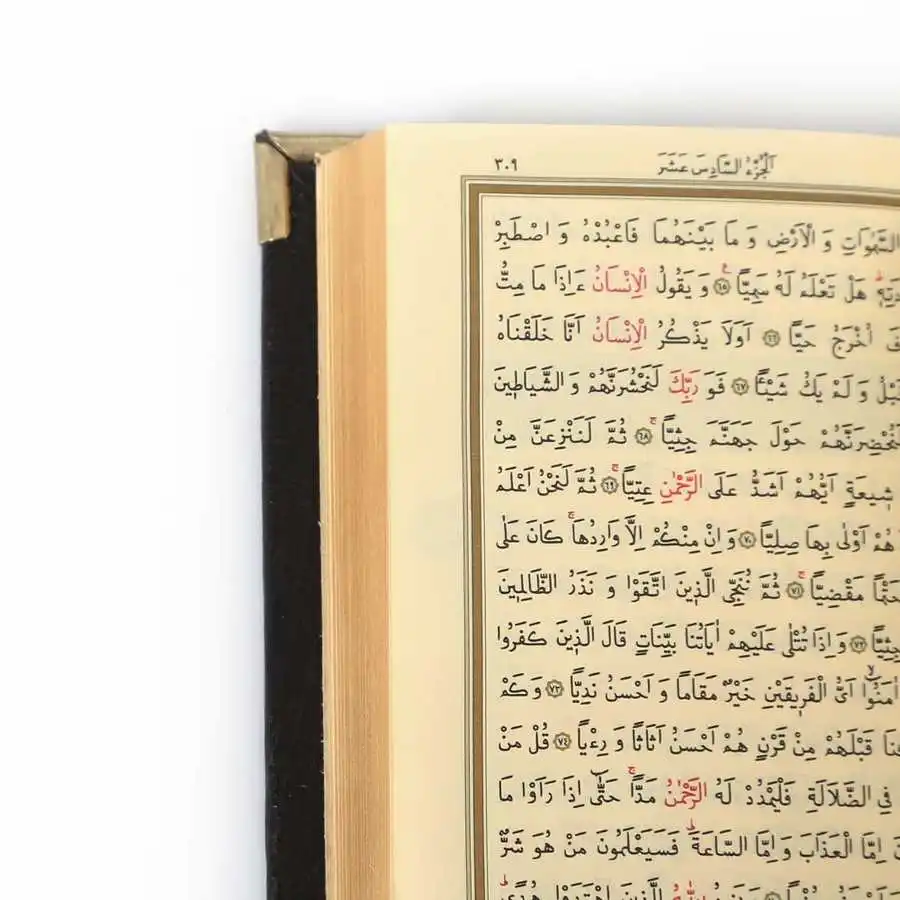 اَلْجُزْءُ السَّادِسَ عَشَرَ ٣٠٩
السَّمٰوَاتِ وَ الْاَرْضِ وَ مَا بَيْنَهُمَا فَاعْبُدْهُ وَ اصْطَبِرْ
هَلْ تَعْلَمُ لَهُ سَمِيًّا ٦٥ وَ يَقُولُ الْاِنْسَانُ ءَاِذَا مَا مِتُّ
اُخْرَجُ حَيًّا ٦٦ اَوَلَا يَذْكُرُ الْاِنْسَانُ اَنَّا خَلَقْنَاهُ
وَ لَمْ يَكُ شَيْئًا ٦٧ فَوَ رَبِّكَ لَنَحْشُرَنَّهُمْ وَ الشَّيَاطٖينَ
لَنُحْضِرَنَّهُمْ حَوْلَ جَهَنَّمَ جِثِيًّا ٦٨ ثُمَّ لَنَنْزِعَنَّ مِنْ
شٖيعَةٍ اَيُّهُمْ اَشَدُّ عَلَى الرَّحْمٰنِ عِتِيًّا ٦٩ ثُمَّ لَنَحْنُ اَعْلَمُ
هُمْ اَوْلٰى بِهَا صِلِيًّا ٧٠ وَ اِنْ مِنْكُمْ اِلَّا وَارِدُهَا كَانَ عَلٰى
حَتْمًا مَقْضِيًّا ٧١ ثُمَّ نُنَجِّى الَّذٖينَ اتَّقَوْا وَ نَذَرُ الظَّالِمٖينَ
جِثِيًّا ٧٢ وَ اِذَا تُتْلٰى عَلَيْهِمْ اٰيَاتُنَا بَيِّنَاتٍ قَالَ الَّذٖينَ كَفَرُوا
اٰمَنُوا اَىُّ الْفَرٖيقَيْنِ خَيْرٌ مَقَامًا وَ اَحْسَنُ نَدِيًّا ٧٣ وَ كَمْ
قَبْلَهُمْ مِنْ قَرْنٍ هُمْ اَحْسَنُ اَثَاثًا وَ رِءْيًا ٧٤ قُلْ مَنْ
فِى الضَّلَالَةِ فَلْيَمْدُدْ لَهُ الرَّحْمٰنُ مَدًّا حَتّٰى اِذَا رَاَوْا مَا
اِمَّا الْعَذَابَ وَ اِمَّا السَّاعَةَ فَسَيَعْلَمُونَ مَنْ هُوَ شَرٌّ
اللّٰهُ الَّذٖينَ اهْتَدَوْا هُدًى